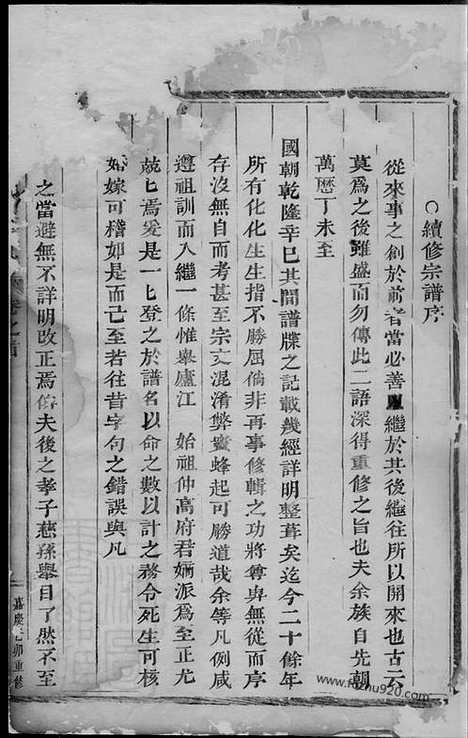 ○續修宗譜序
從來事之創於前者當必善繼於其後繼往所以開來也古云
莫為之後雖盛而勿傳此二語深得重修之旨也夫余族自先朝
萬曆丁未至
國朝乾隆辛巳其間譜牒之記載幾經詳明整葺矣迄今二十餘年
所有化化生生指不勝屈倘非再事修輯之功將尊卑無從而序
存沒無自而考甚至宗支混淆弊竇蜂起可勝道哉余等凡例咸
遵祖訓而入繼一條惟舉廬江 始祖仲高府君嫡派為至正尤
兢匕焉爰是一匕登之於譜名以命之數以計之務令死生可核
婚嫁可稽如是而已至若往昔字句之錯誤與凡
之當避無不詳明改正焉俾夫後之孝子慈孫舉目了然不至
卷之首
嘉慶己卯重修
www.fozhu920.com